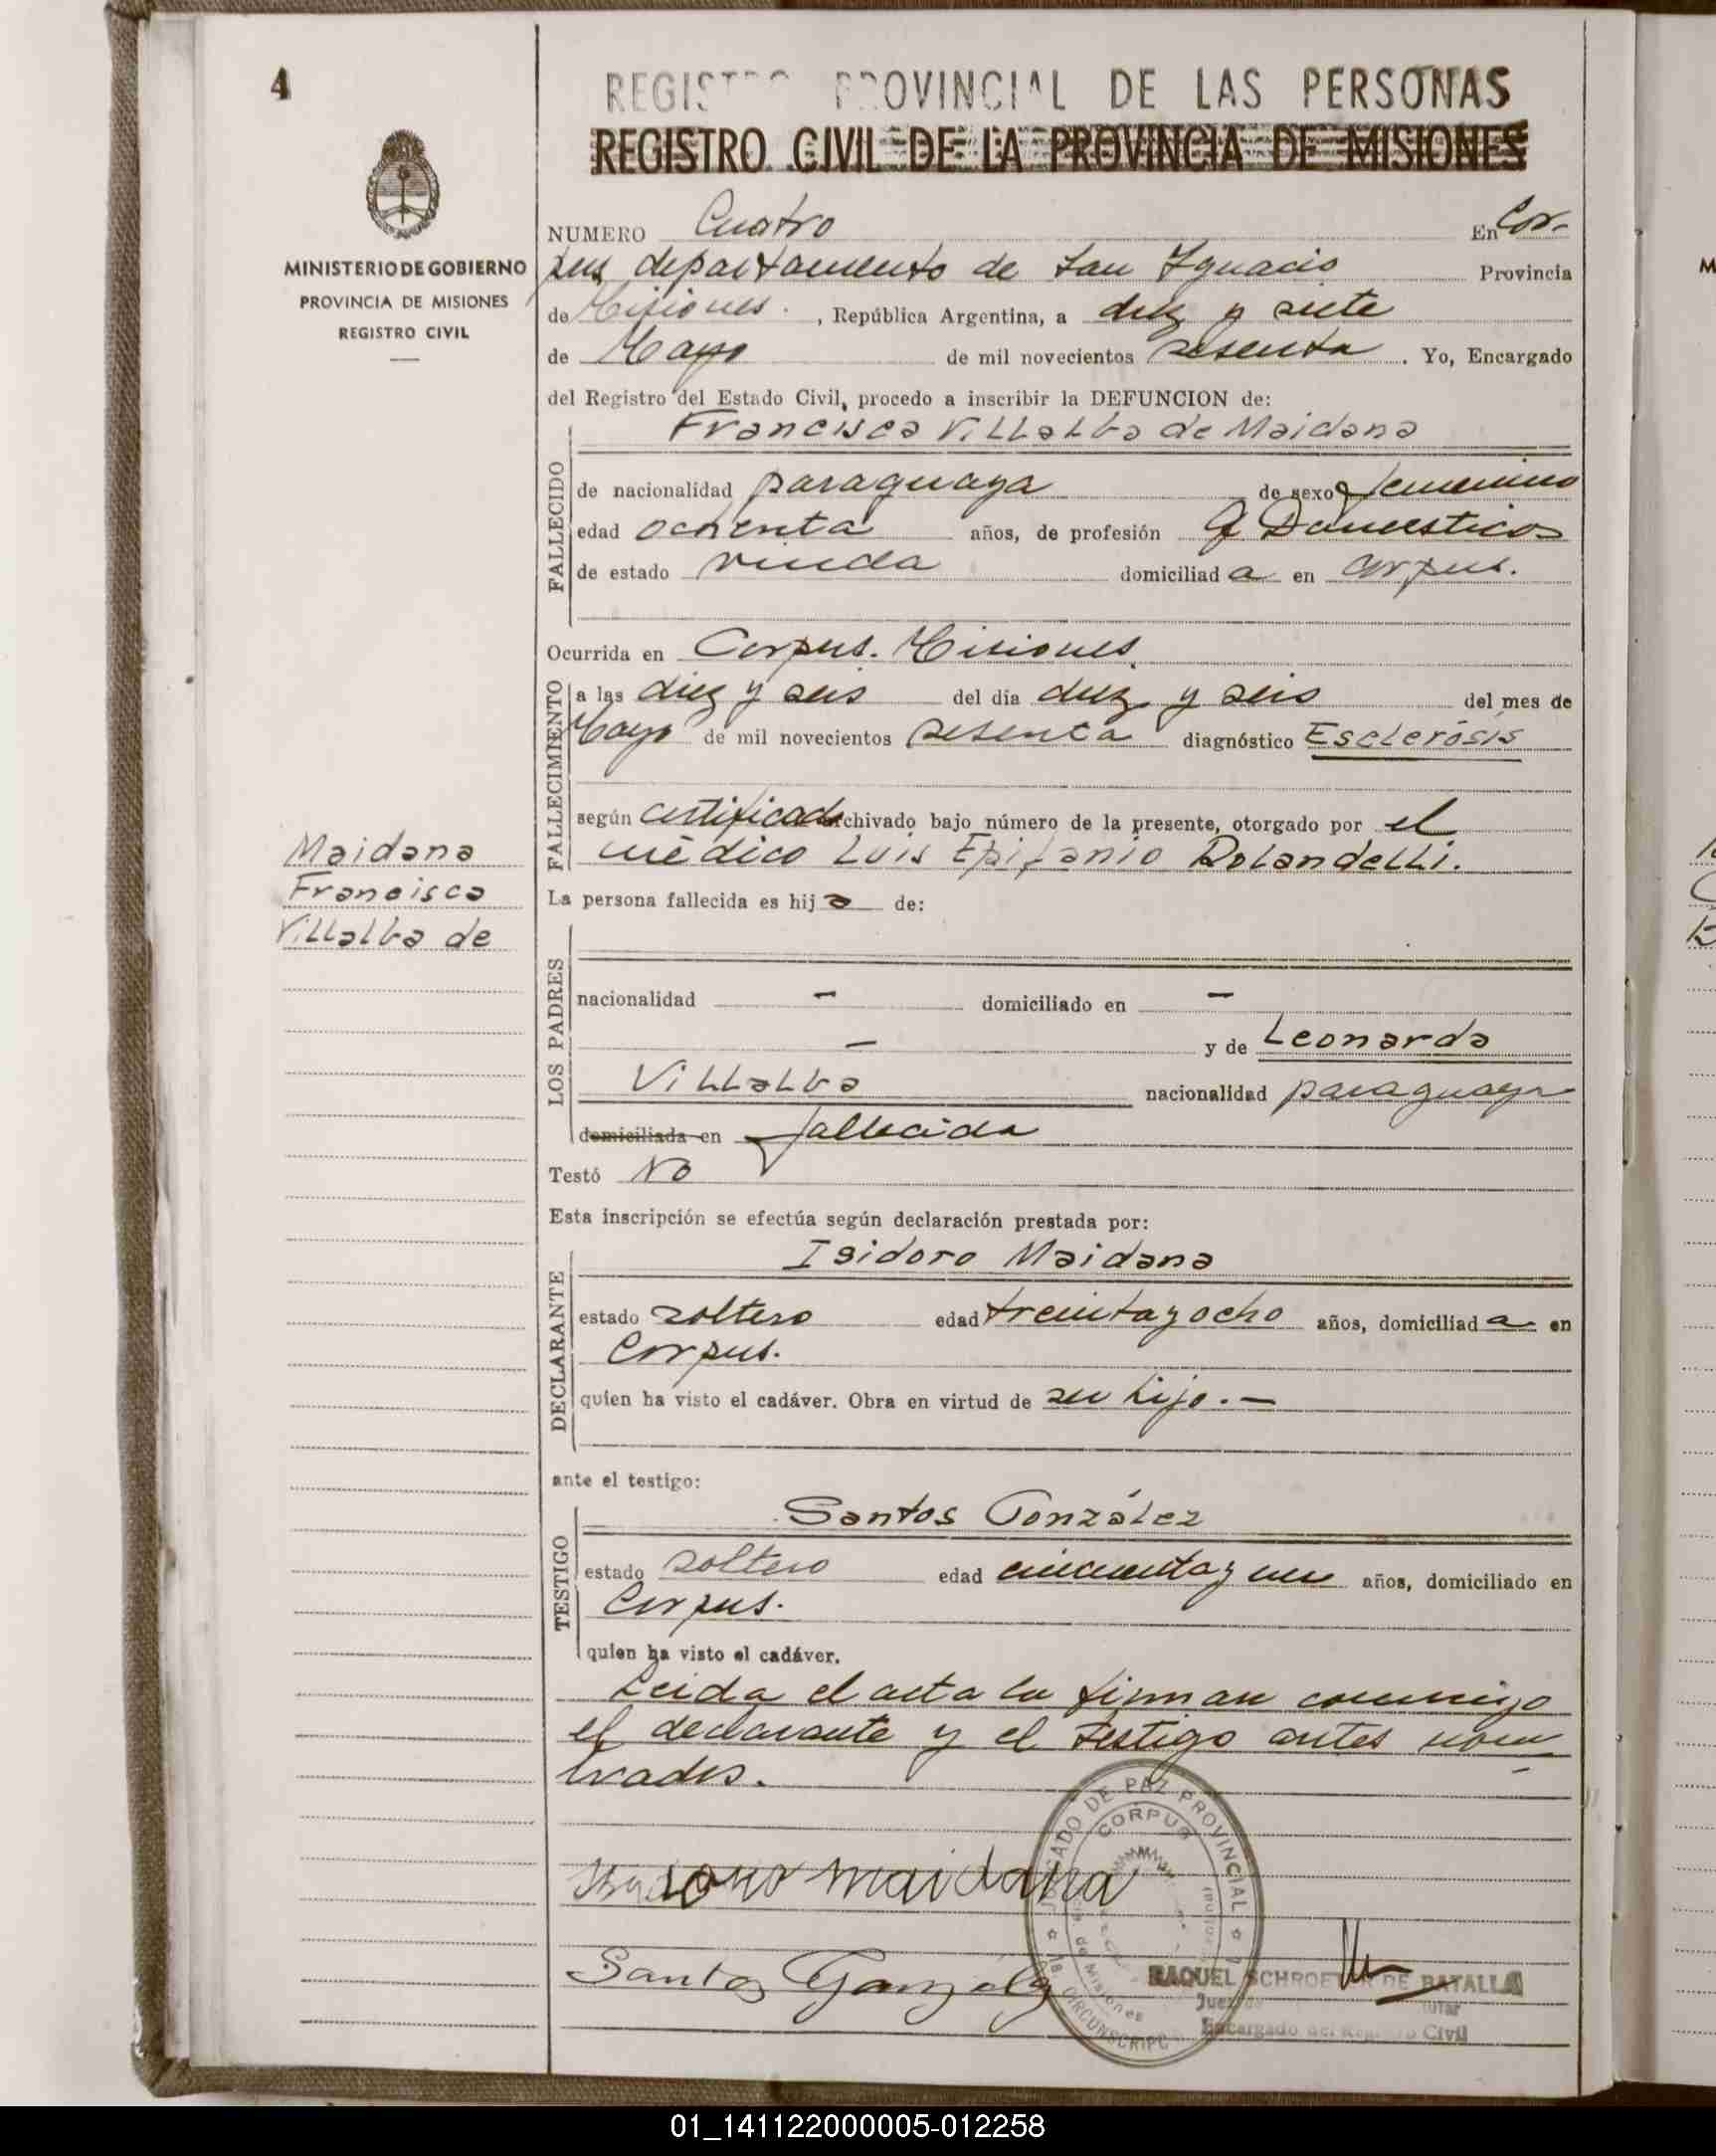 4
REGISTRO PROVINCIAL DE LAS PERSONAS
REGISTRO CIVIL DE LA PROVINCIA DE MISIONES
MINISTERIO DE GOBIERNO
PROVINCIA DE MISIONES
REGISTRO CIVIL
NUMERO Cuatro En Cor-
pus departamento de San Ignacio Provincia
de Misiones. , República Argentina, a diez y siete
de Mayo de mil novecientos sesenta . Yo, Encargado
del Registro del Estado Civil, procedo a inscribir la DEFUNCION de:
Francisca Villalba de Maidana
FALLECIDO
de nacionalidad paraguaya de sexo femenino
edad ochenta años, de profesión Q Domesticos
de estado viuda domiciliad a en Corpus.
Ocurrida en Corpus. Misiones
FALLECIMIENTO
a las diez y seis del día diez y seis del mes de
Mayo de mil novecientos sesenta diagnóstico Esclerósis
según certificado archivado bajo número de la presente, otorgado por el
médico Luis Epifanio Rolandelli.
Maidana
Francisca
Villalba de
La persona fallecida es hij a de:
LOS PADRES
nacionalidad - domiciliado en -
- y de Leonarda
Villalba nacionalidad paraguaya
domiciliada en fallecida
Testó No
Esta inscripción se efectúa según declaración prestada por:
Isidoro Maidana
DECLARANTE
estado soltero edad treinta y ocho años, domiciliad a en
Corpus.
quien ha visto el cadáver. Obra en virtud de su hijo.-
ante el testigo:
Santos González
TESTIGO
estado soltero edad cincuenta y un años, domiciliado en
Corpus.
quien ha visto el cadáver.
Leida el acta la firman conmigo
el declarante y el testigo antes nom-
brados.
JUZGADO DE PAZ PROVINCIAL
CORPUS
de Misiones
CIRCUNSCRIPC
maidana
Santos Gonzalez
RAQUEL SCHROEDER DE BATALLA
Juez
Encargado del Registro Civil
01_141122000005-012258